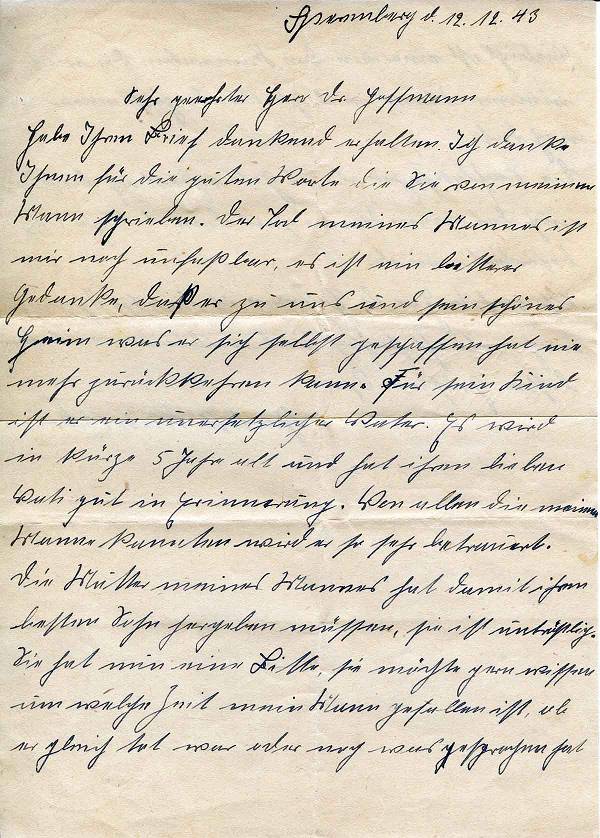 Spremberg d. 12.12.43
Sehr geehrter Herr Dr. Hoffmann
Habe Ihren Brief dankend erhalten. Ich danke
Ihnen für die guten Worte die Sie von meinem
Mann schrieben. Der Tod meines Mannes ist
mir noch unfaßbar, es ist ein bitterer
Gedanke, daß er zu uns und sein schönes
Heim was er sich selbst geschaffen hat nie
mehr zurückkehren kann. Für sein Kind
ist er ein unersetzlicher Vater. Es wird
in Kürze 5 Jahre alt und hat ihren lieben
Vati gut in Erinnerung. Von allen die meinen
Mann kannten wird er so sehr betrauert.
Die Mutter meines Mannes hat damit ihren
besten Sohn hergeben müssen, sie ist untröstlich.
Sie hat nun eine Bitte, sie möchte gern wissen
um welche Zeit mein Mann gefallen ist, ob
er gleich tot war oder noch was gesprochen hat